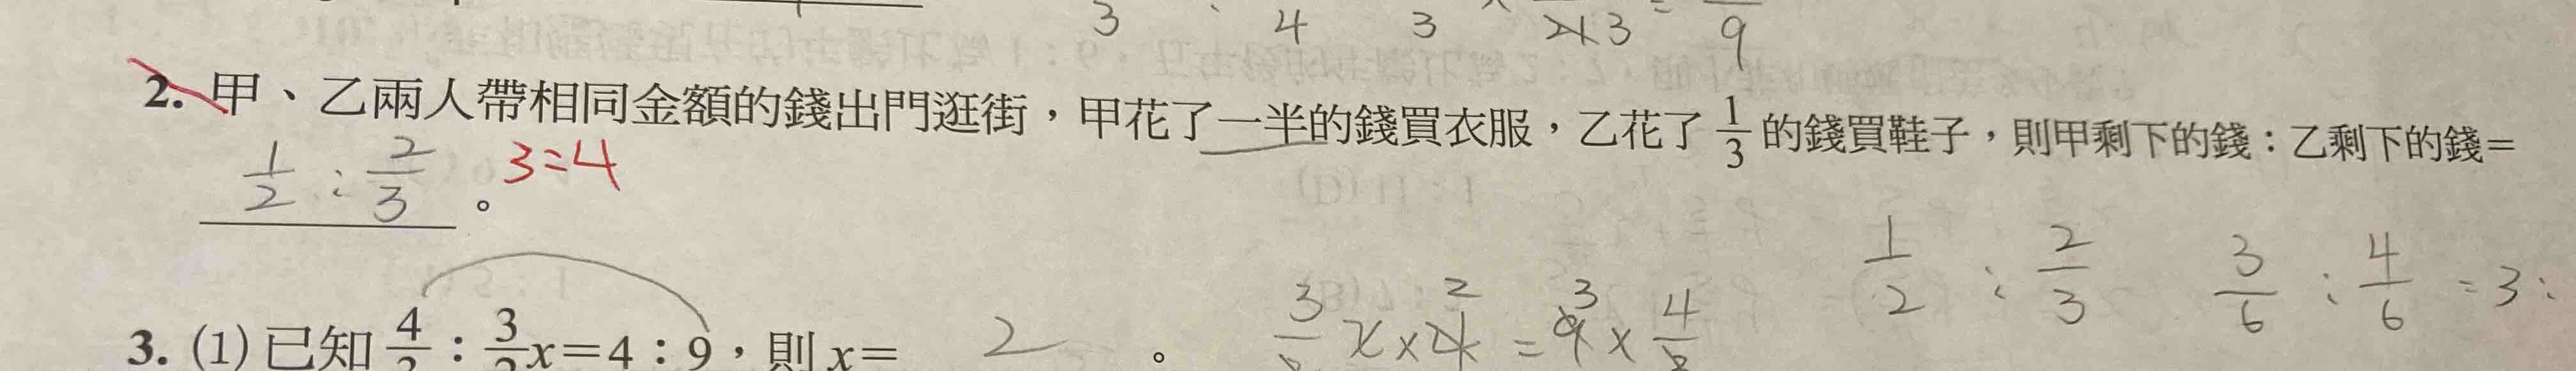 3 4 3 × 2×3 = 9
2. 甲、乙兩人帶相同金額的錢出門逛街，甲花了一半的錢買衣服，乙花了 1/3 的錢買鞋子，則甲剩下的錢：乙剩下的錢＝
1/2 : 2/3 。 3:4
1/2 : 2/3 3/6 : 4/6 = 3 :
3. (1) 已知 4/3 : 3/2 x = 4 : 9，則 x = 2 。